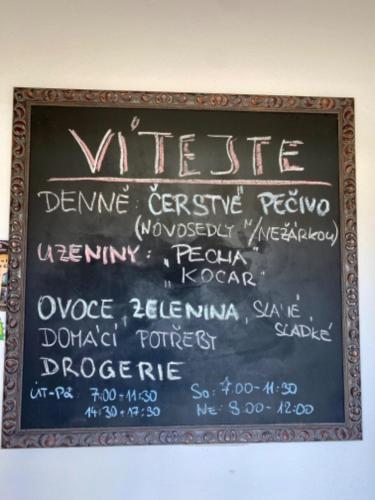 VÍTEJTE
DENNĚ: ČERSTVÉ PEČIVO
(NOVOSEDLY N/NEŽÁRKOU)
UZENINY: „PECHA"
„KOCAR"
OVOCE, ZELENINA, SLANÉ,
SLADKÉ
DOMÁCÍ POTŘEBY
DROGERIE
ÚT-PÁ: 7.00-11:30
14:30-17:30
SO: 7.00-11:30
NE: 8.00-12:00